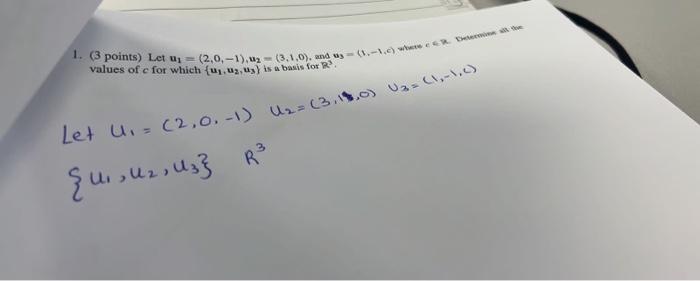 1. (3 points) Let u₁ = (2,0,−1), u₂ = (3,1,0), and u₃ = (1,−1,c) where c ∈ ℝ. Determine all the
values of c for which {u₁, u₂, u₃} is a basis for ℝ³.
Let u₁ = (2,0,-1) u₂ = (3,1,0) u₃ = (1,-1,c)
{u₁, u₂, u₃} R³